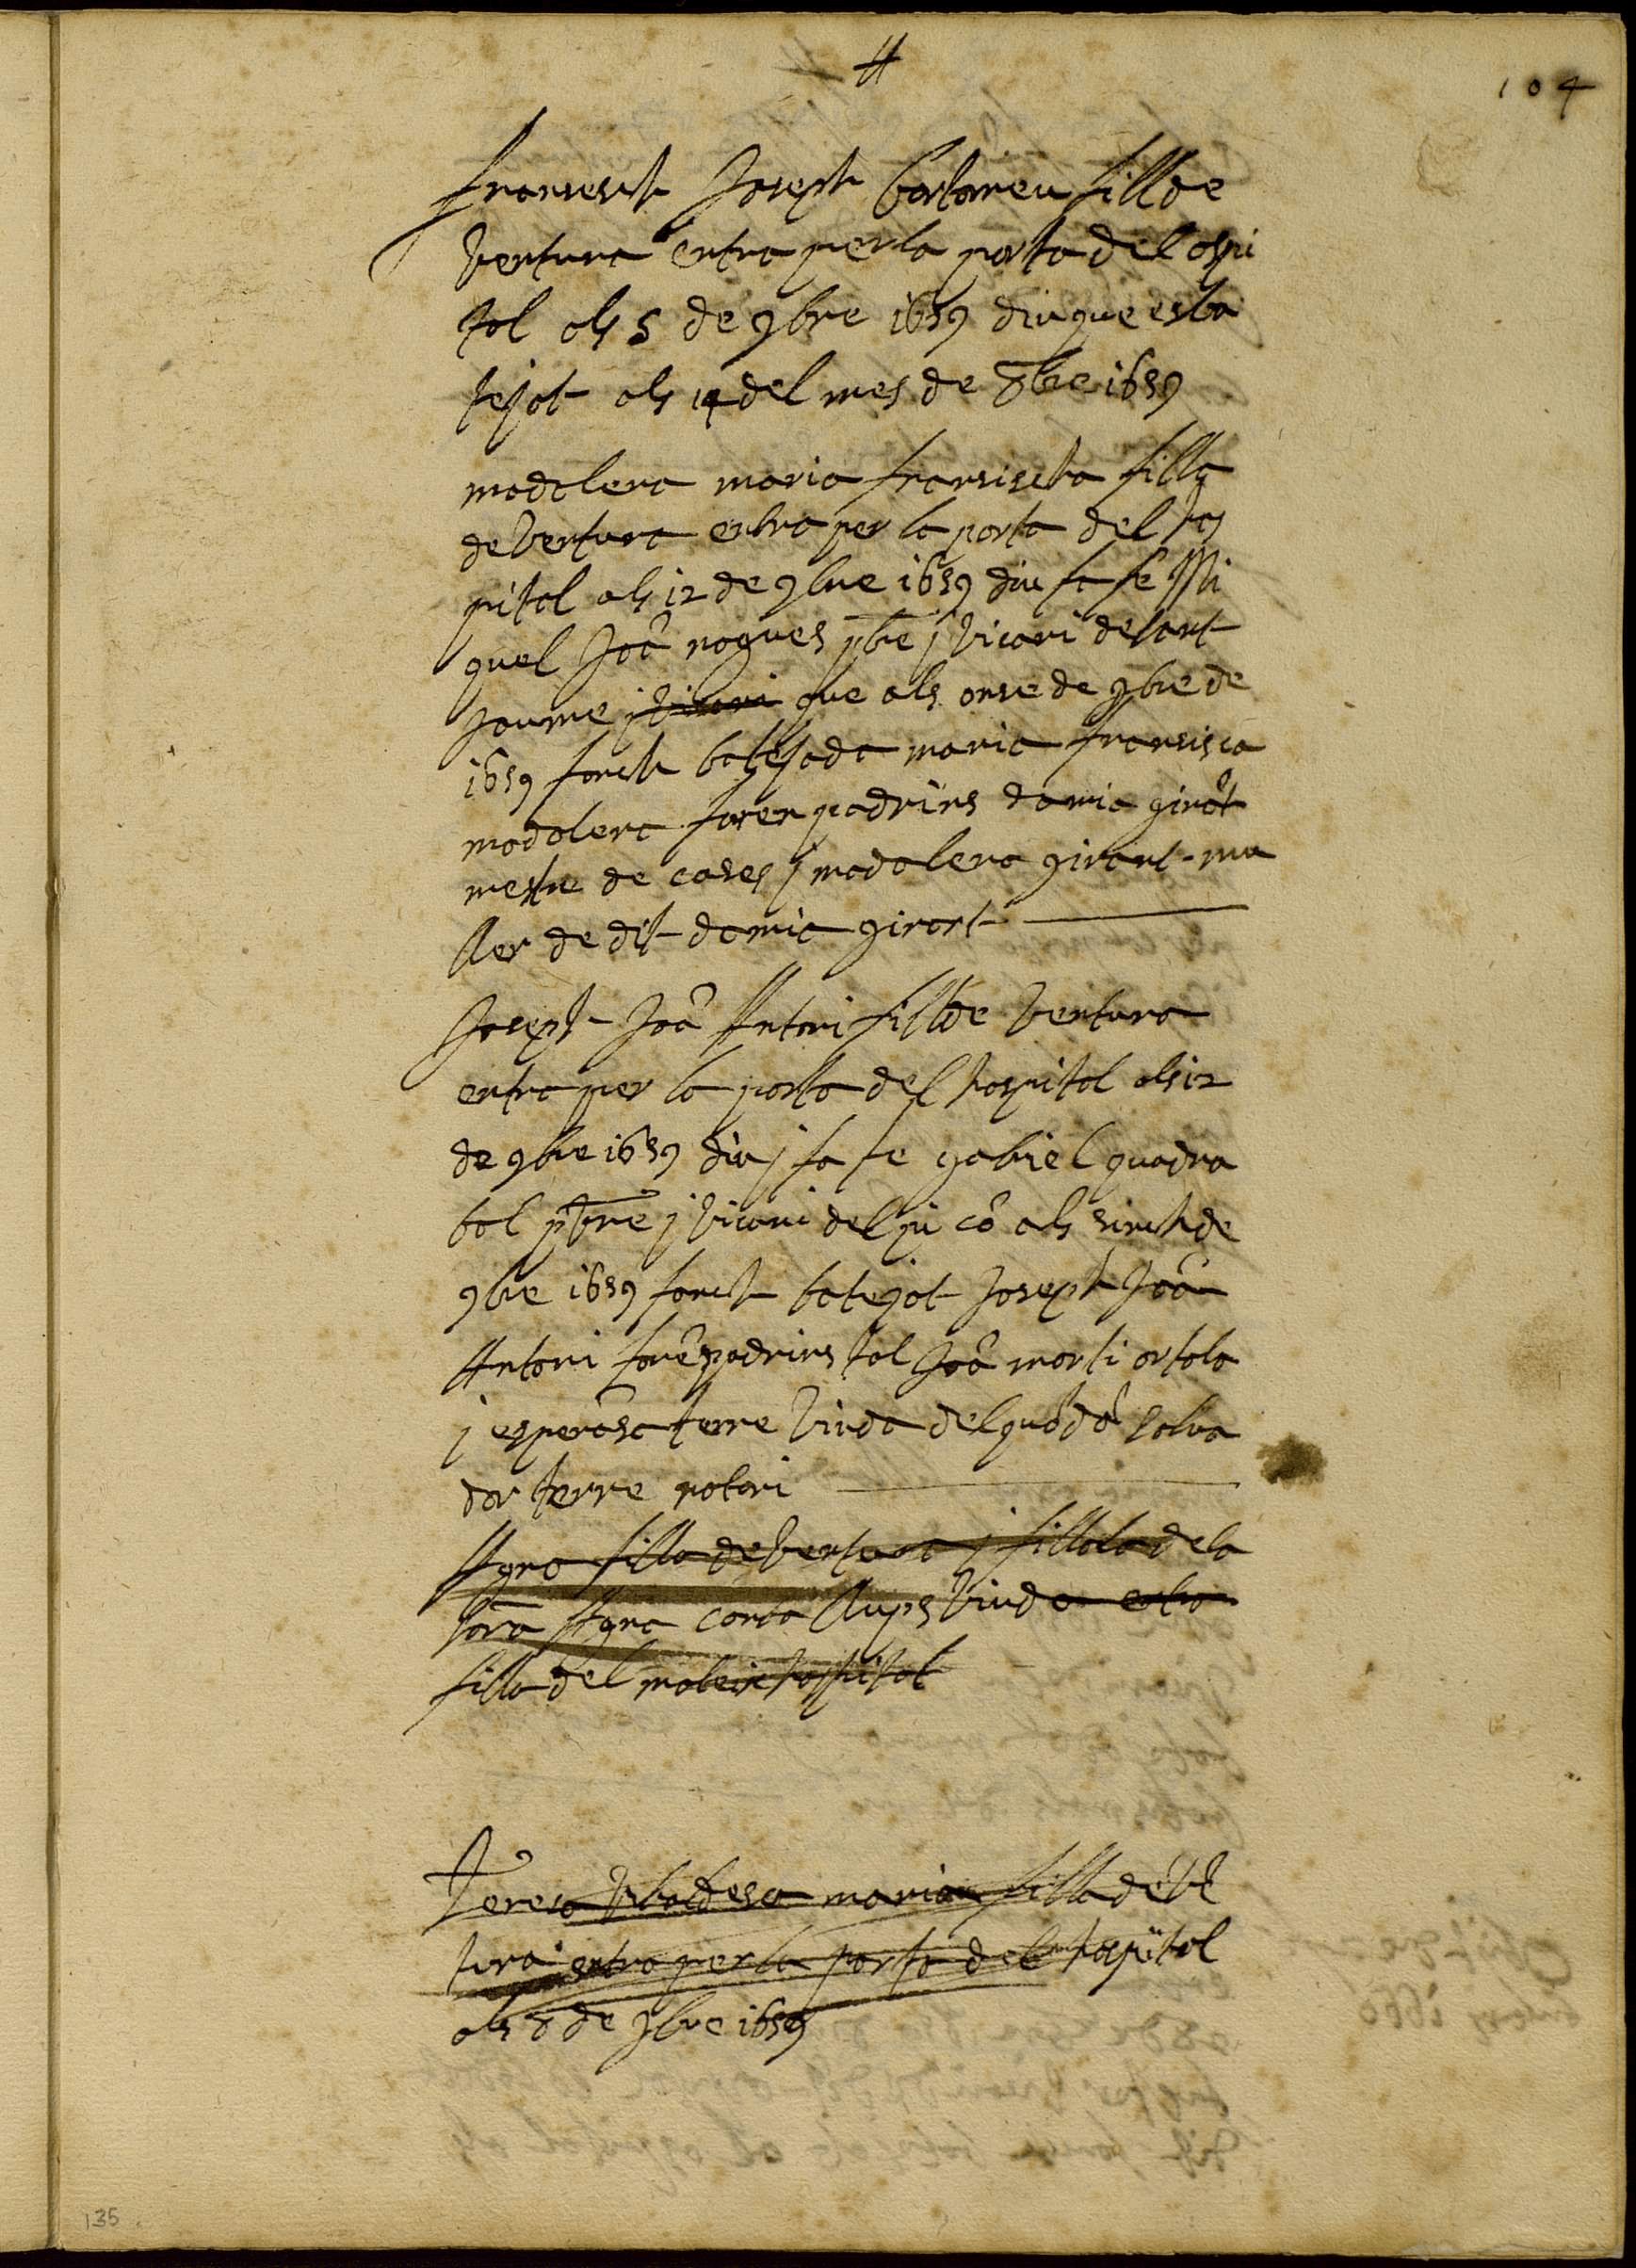 104
fransesch Joseph bartomeu fill de
Ventura entra per la porta del ospi
tal als 5 de 9bre 1659 diu que es ba
tejat als 14 del mes de 8bre 1659
madalena maria fransischa filla
de Ventura entra per la porta del hos
pital als 12 de 9bre 1659 diu fa fe Mi
quel Joã nogues pbre j Vicari de sant
Jaume j Vicari que als onse de 9bre de
1659 fonch batejada maria fransisca
madalena foren padrins damia girãt
mestre de cases j madalena girart mu
ller de dit damia girart
Joseph Joã Antoni fill de Ventura
entra per la porta del hospital als 12
de 9bre 1659 diu j fa fe gabriel quadra
bal pbre j Vicari del pi cõ als sinch de
9bre 1659 fonch batejat Joseph Joã
Antoni forẽ padrins tal Joã marti ortola
j esperãsa terre Viuda del quõdã salva
dor terre notari
Agna filla de Ventura j fillola de la
sora Agna Llups Viuda
filla del mateix hospital
Teresa maria filla de Vẽ
tura entra per la porta del hospital
als 8 de 9bre 1659
135